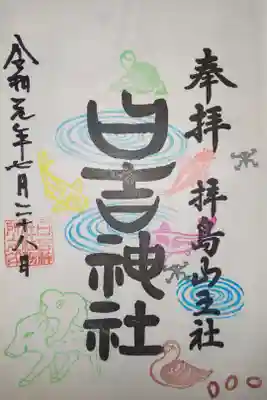 奉拝 拝島山王社
日吉神社
令和元年七月二十八日